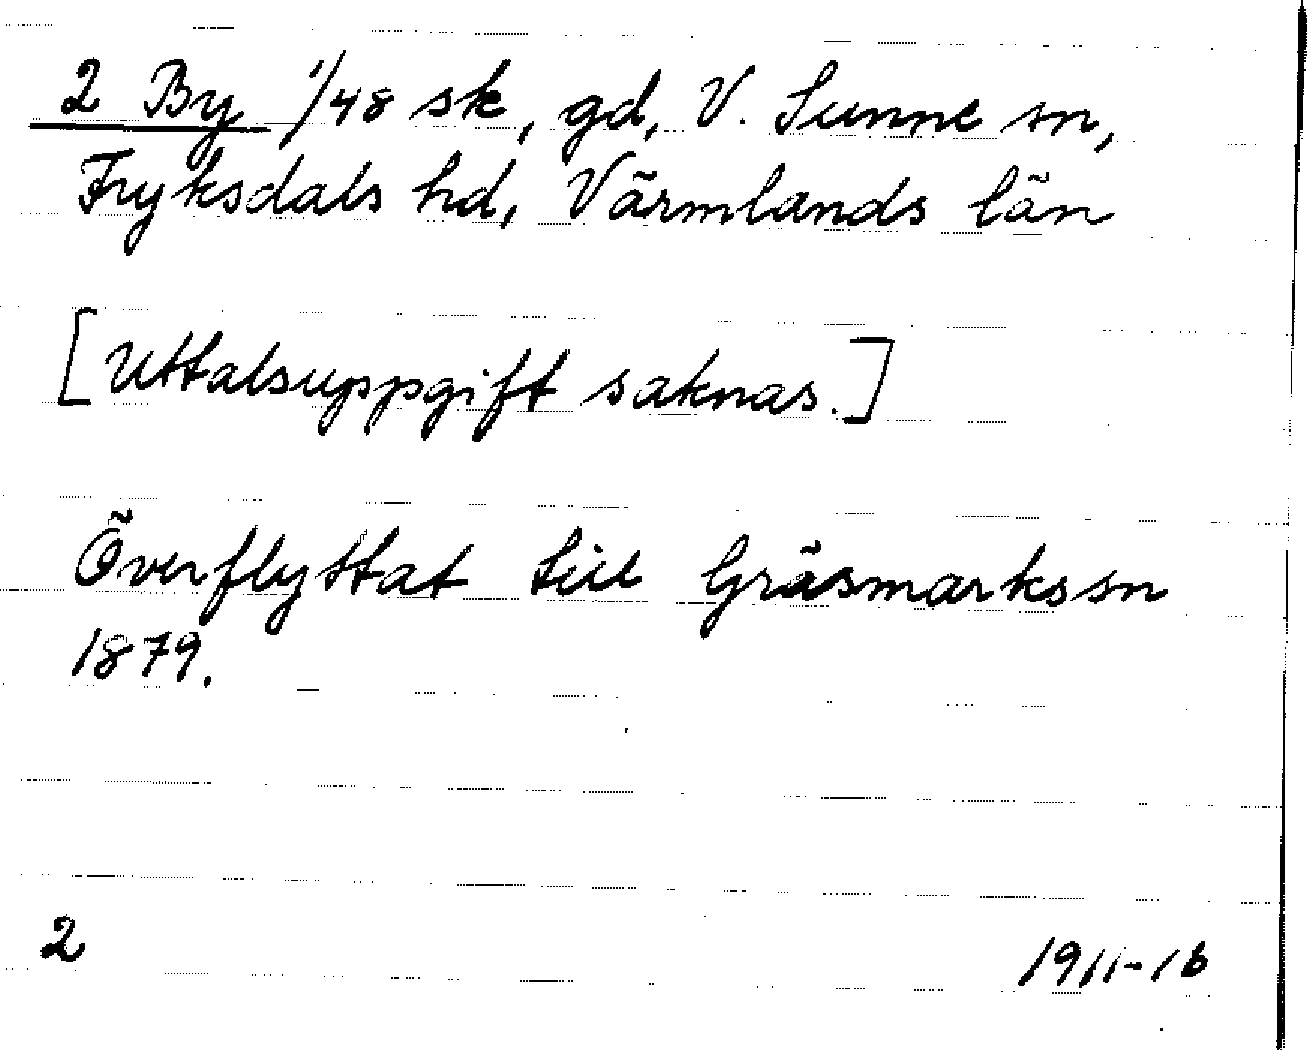 2 By 1/48 sk, gd, V. Sunne sn,
Fryksdals hd, Värmlands län
[Uttalsuppgift saknas.]
Överflyttat till Gräsmarkssn
1879.
2
1911-16